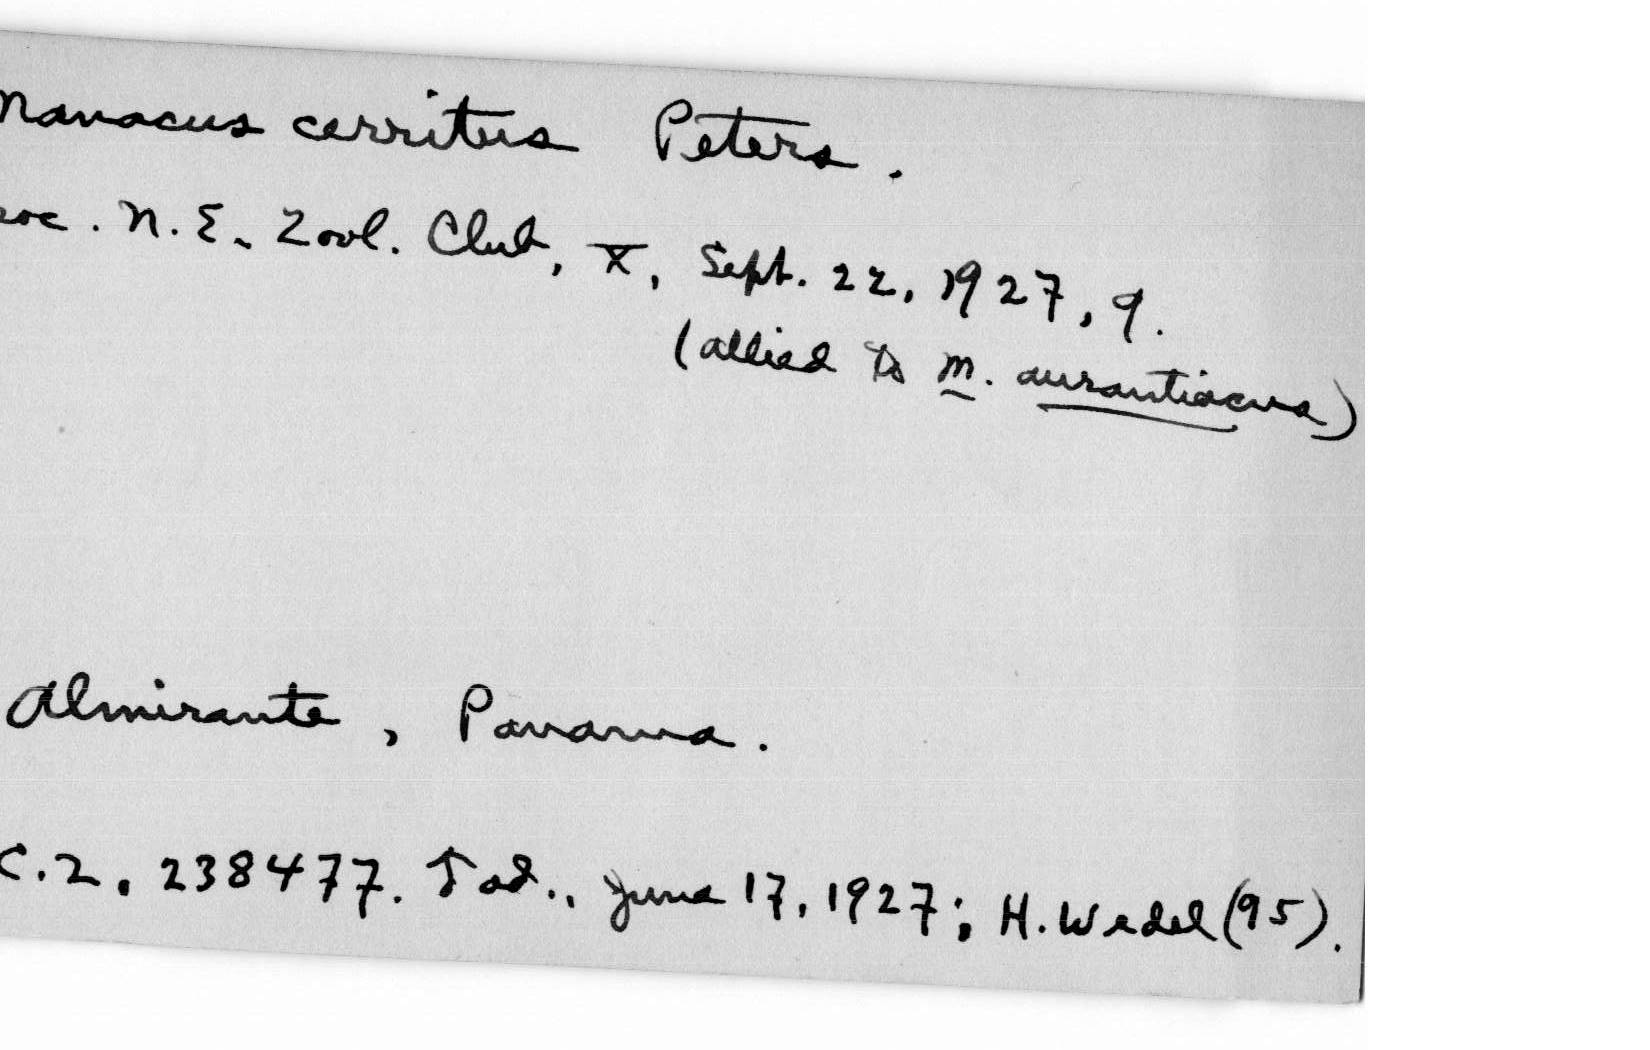 Manacus cerritus Peters.
roc. N. E. Zool. Club, X, Sept. 22, 1927, 9.
(allied to M. aurantiacus)
Almirante, Panama.
C. Z. 238477. ♂ ad., June 17, 1927; H. Wedel (95).